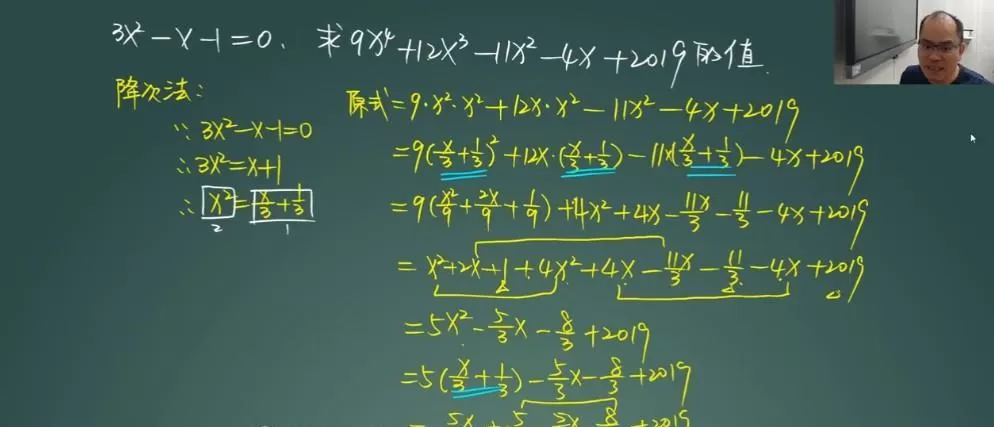 3x²-x-1=0. 求9x⁴+12x³-11x²-4x+2019的值.
降次法:
∵ 3x²-x-1=0
∴ 3x²=x+1
∴ x²=x/3+1/3
2 1
原式=9·x²·x²+12x·x²-11x²-4x+2019
=9(x/3+1/3)²+12x·(x/3+1/3)-11x(x/3+1/3)-4x+2019
=9(x²/9+2x/9+1/9)+4x²+4x-11x/3-11/3-4x+2019
=x²+2x+1+4x²+4x-11x/3-11/3-4x+2019
=5x²-5/3x-8/3+2019
=5(x/3+1/3)-5/3x-8/3+2019